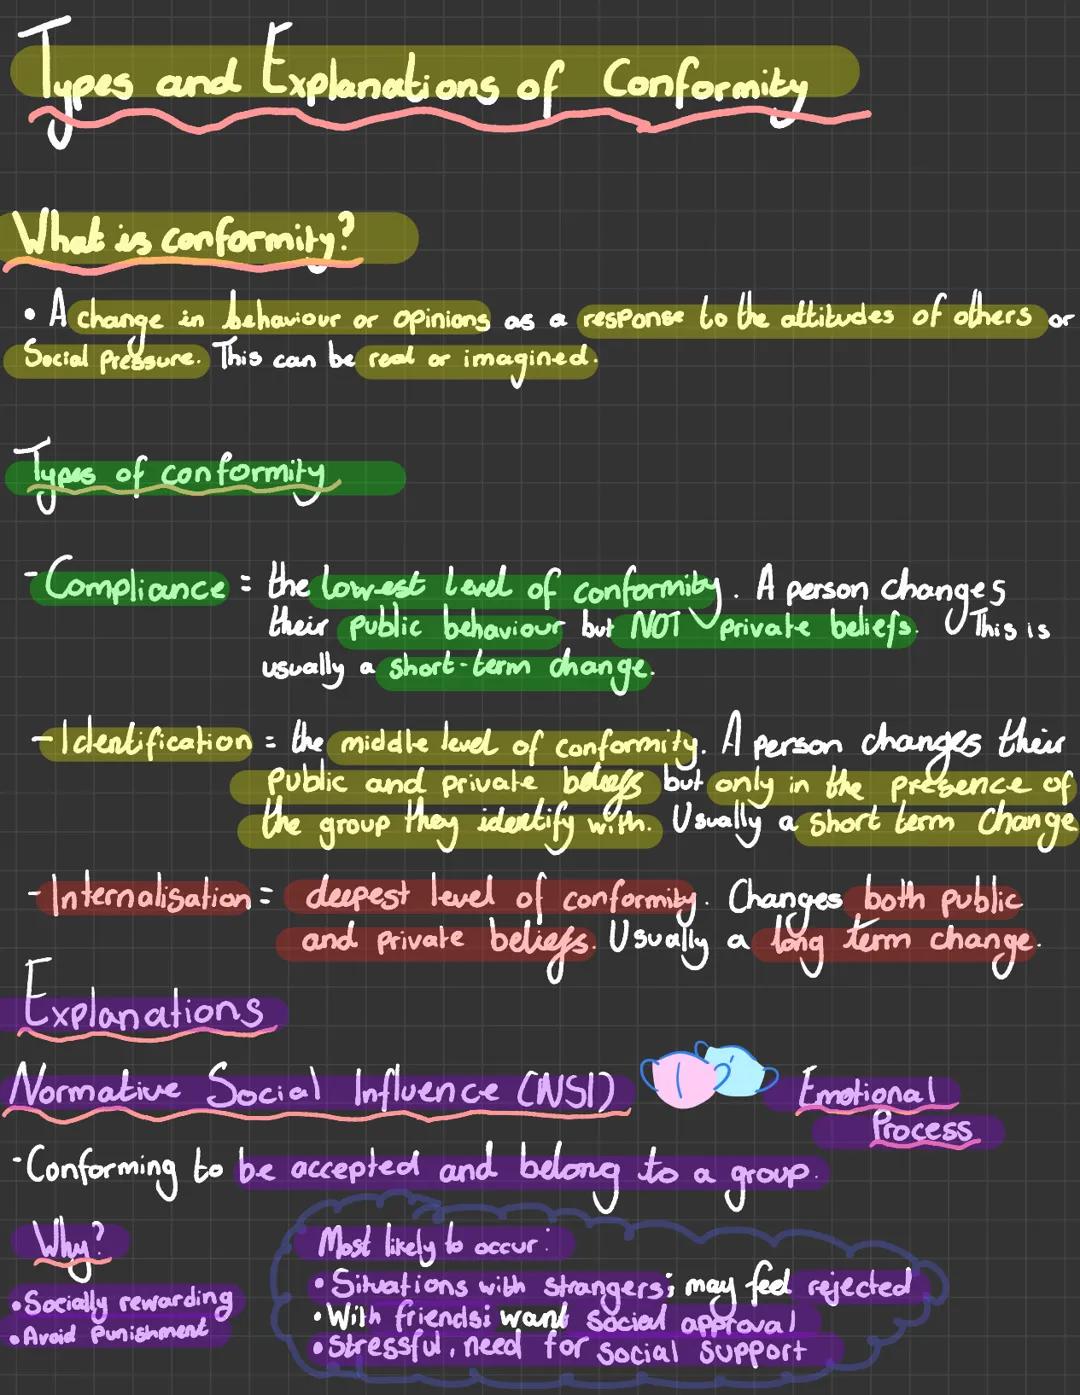 Types and Explanations of Conformity
What is conformity?
• A change in behaviour or opinions as a response to the attitudes of others or
Social Pressure. This can be real or imagined.
Types of conformity
- Compliance = the lowest level of conformity. A person changes
their public behaviour but NOT private beliefs. This is
usually a short-term change.
- Identification = the middle level of conformity. A person changes their
Public and private beliefs but only in the presence of
the group they identify with. Usually a short term change
- Internalisation = deepest level of conformity. Changes both public
and private beliefs. Usually a long term change.
Explanations
Normative Social Influence (NSI) Emotional
Process
- Conforming to be accepted and belong to a group.
Why?
• Socially rewarding
• Avoid Punishment
Most likely to occur:
• Situations with strangers; may feel rejected
• With friends; want social approval
• Stressful, need for social support